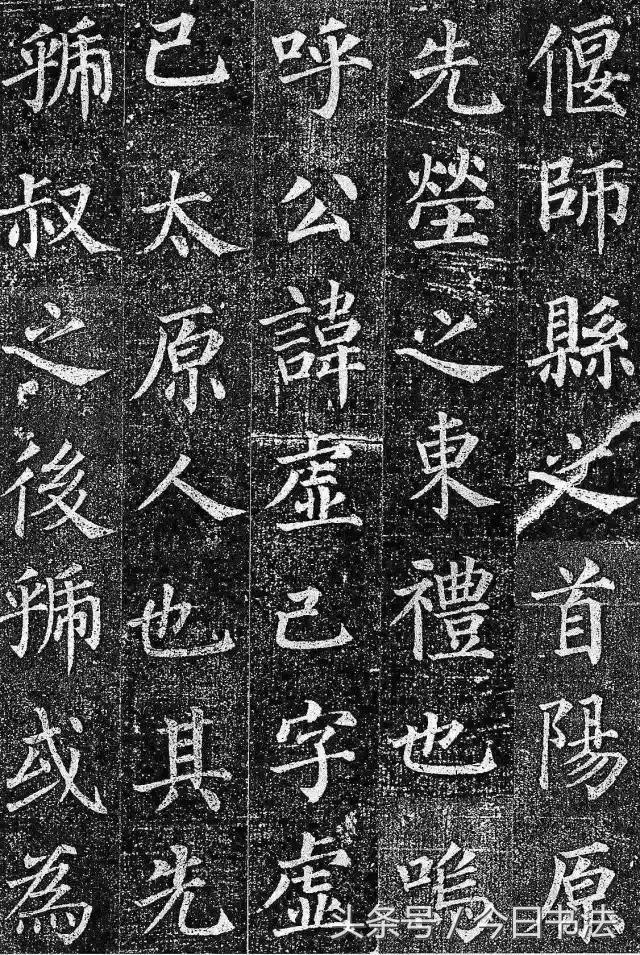 偃師縣之首陽原
先塋之東禮也嗚
呼公諱虛己字虛
己太原人也其先
虢叔之後虢或為
头条号 / 今日书法